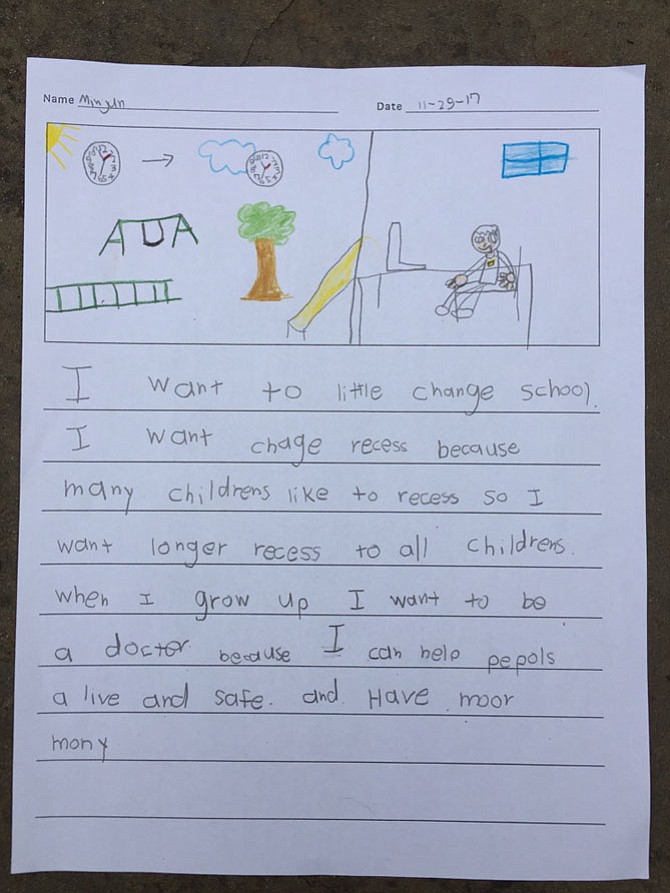 Name Minjun Date 11-29-17
I want to little change school.
I want chage recess because
many childrens like to recess so I
want longer recess to all childrens.
when I grow up I want to be
a doctor because I can help pepols
a live and safe. and. Have moor
mony